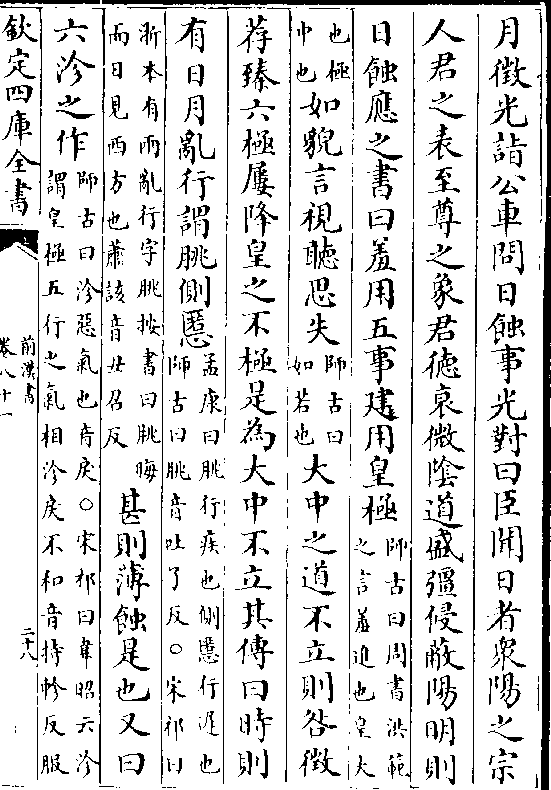 月徵光詣公車問日蝕事光對曰臣聞日者衆陽之宗
人君之表至尊之象君德衰微陰道盛彊侵蔽陽明則
日蝕應之書曰羞用五事建用皇極師古曰周書洪範之言羞進也皇大
也極中也如貌言視聽思失師古曰如若也大中之道不立則咎徵
荐臻六極屢降皇之不極是為大中不立其傳曰時則
有日月亂行謂朓側慝孟康曰朓行疾也側慝行遲也師古曰朓音吐了反○宋祁曰
浙本有兩亂行字朓按書曰朓晦而日見西方也蕭該音丑召反甚則薄蝕是也又曰
六沴之作師古曰沴惡氣也音戾○宋祁曰韋昭云沴謂皇極五行之氣相沴戾不和音持軫反服
欽定四庫全書
前漢書
卷八十一
二十八